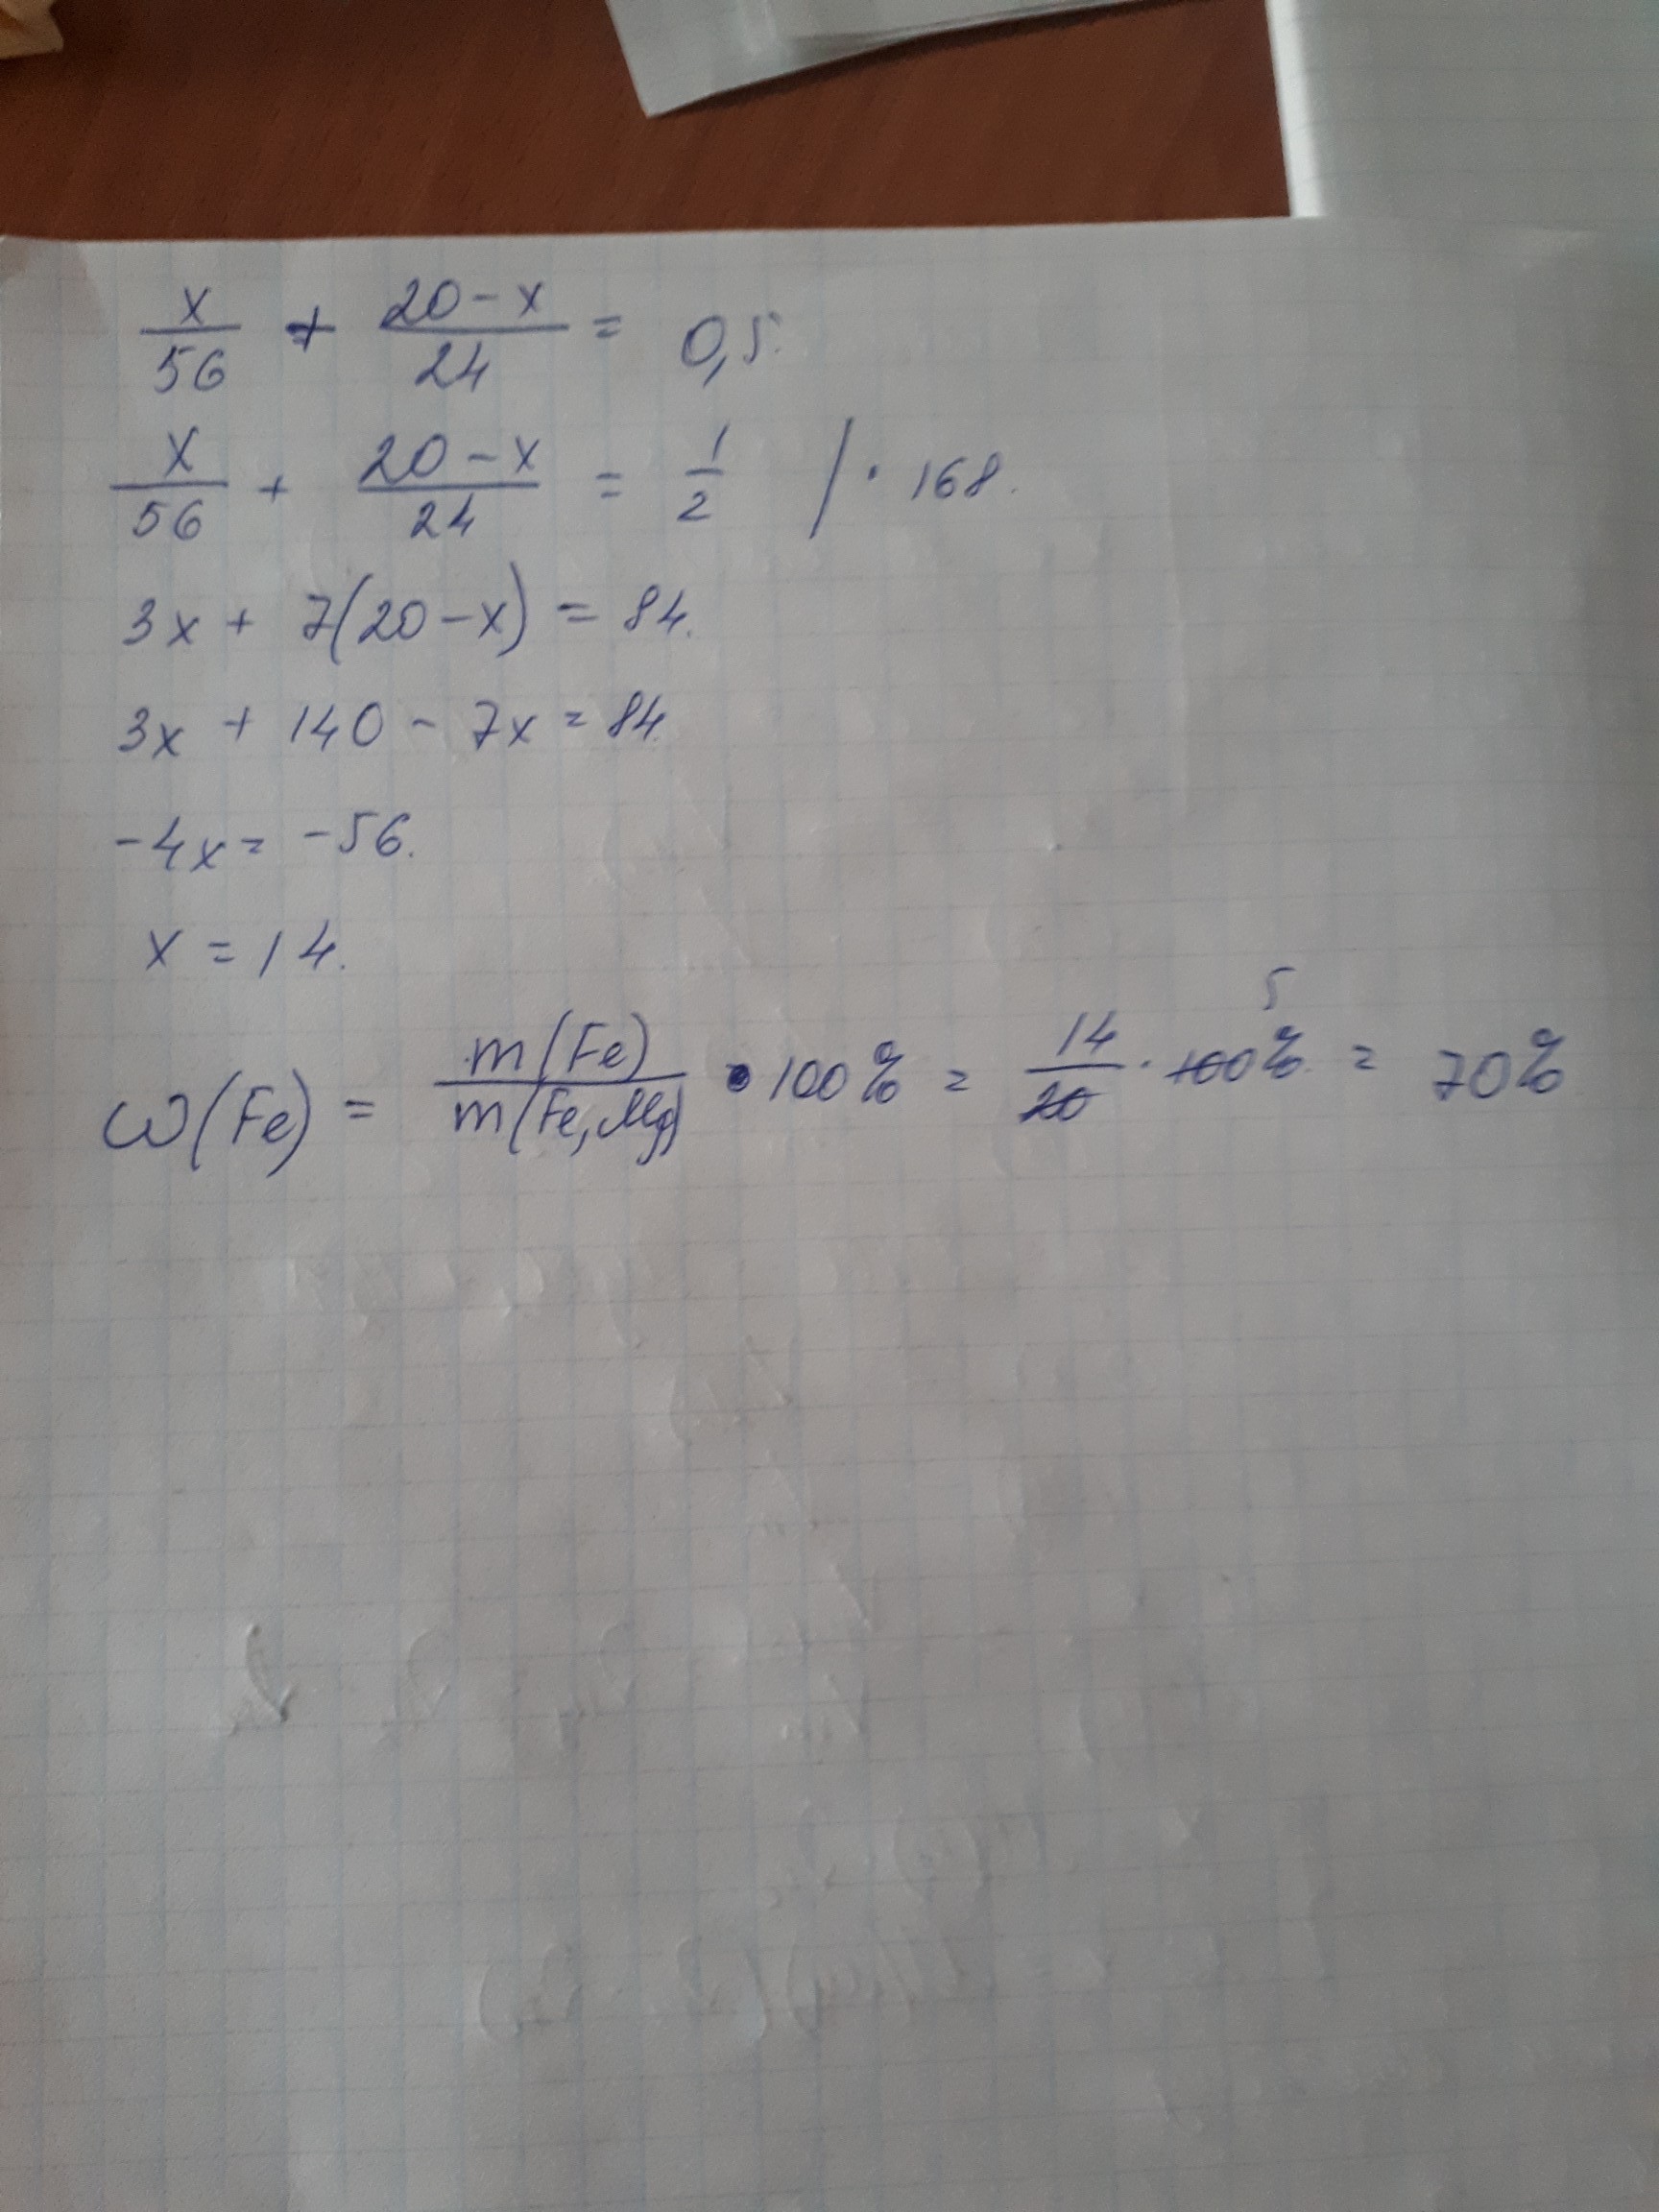 x/56 + (20-x)/24 = 0,5.
x/56 + (20-x)/24 = 1/2 / · 168.
3x + 7(20-x) = 84.
3x + 140 - 7x = 84.
-4x = -56.
x = 14.
ω(Fe) = m(Fe)/m(Fe,Mg) · 100% = 14/20 · 100% 5 = 70%